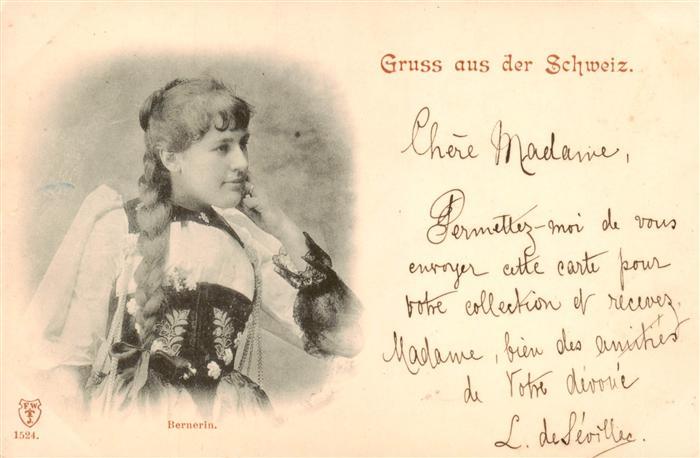 Gruss aus der Schweiz.
Chère Madame,
Permettez-moi de vous
envoyer cette carte pour
votre collection et recevez,
Madame, bien des amitiés
de Votre dévoué
L. de
Bernerin.
F W
1524.